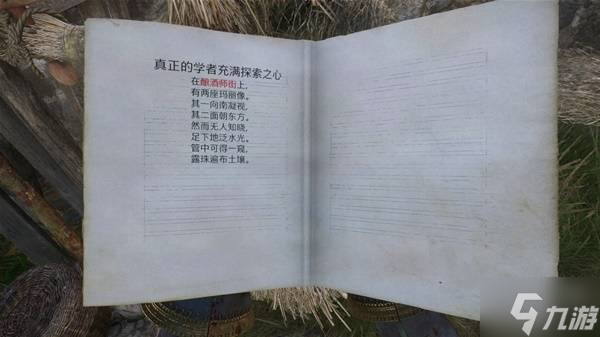 真正的学者充满探索之心
在酿酒师街上，
有两座玛丽像。
其一向南凝视，
其二面朝东方。
然而无人知晓，
足下地泛水光。
管中可得一窥，
露珠遍布土壤。
九游